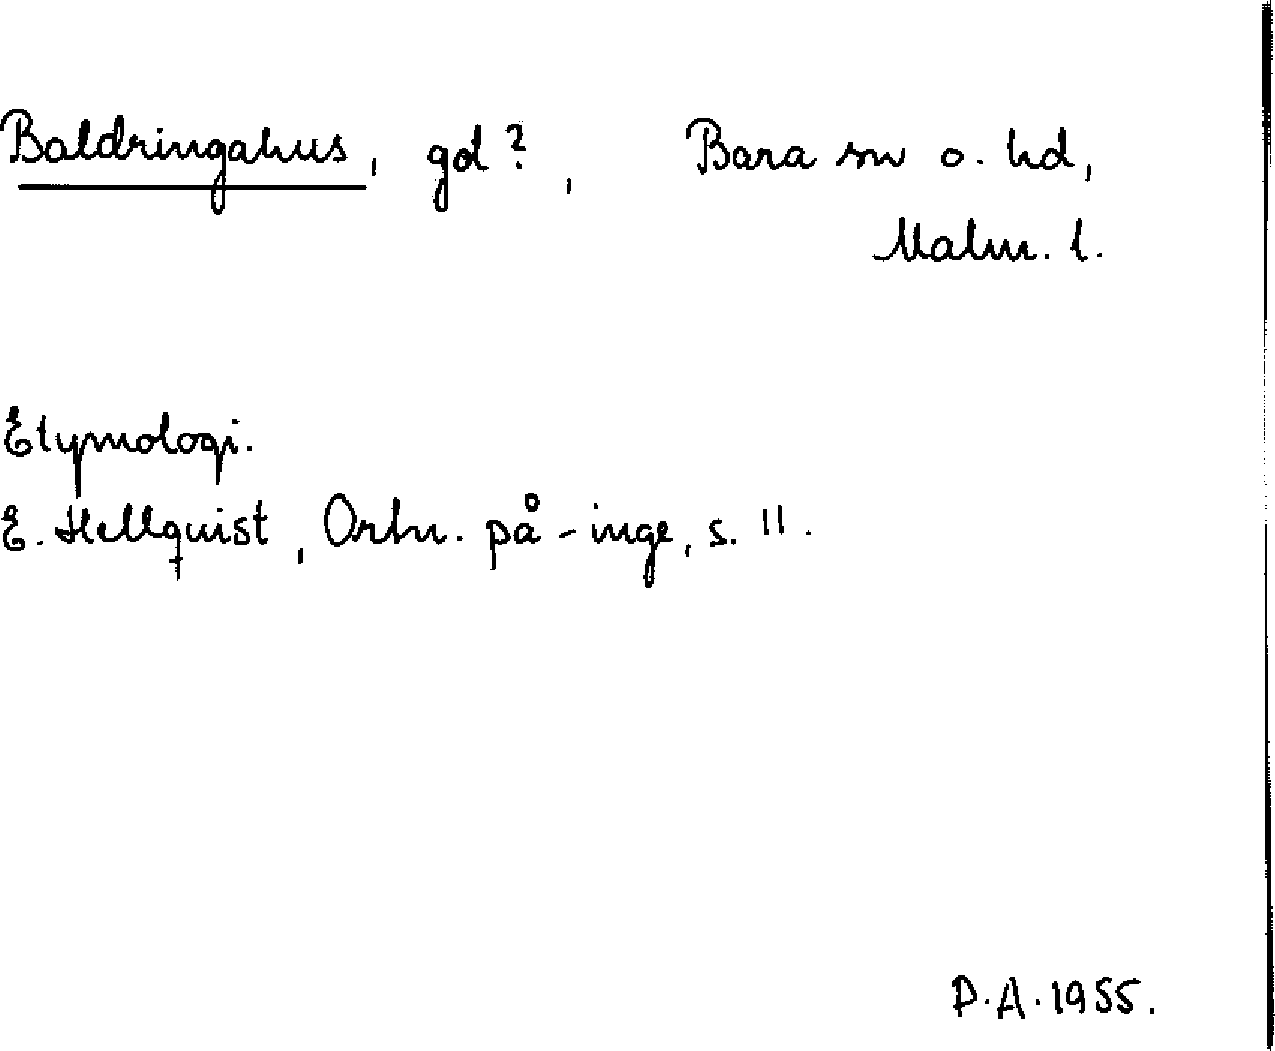 Baldringahus, gd?, Bara sn o. hd,
Malm. l.
Etymologi.
E. Hellquist, Ortn. på -inge, s. 11.
P.A. 1955.